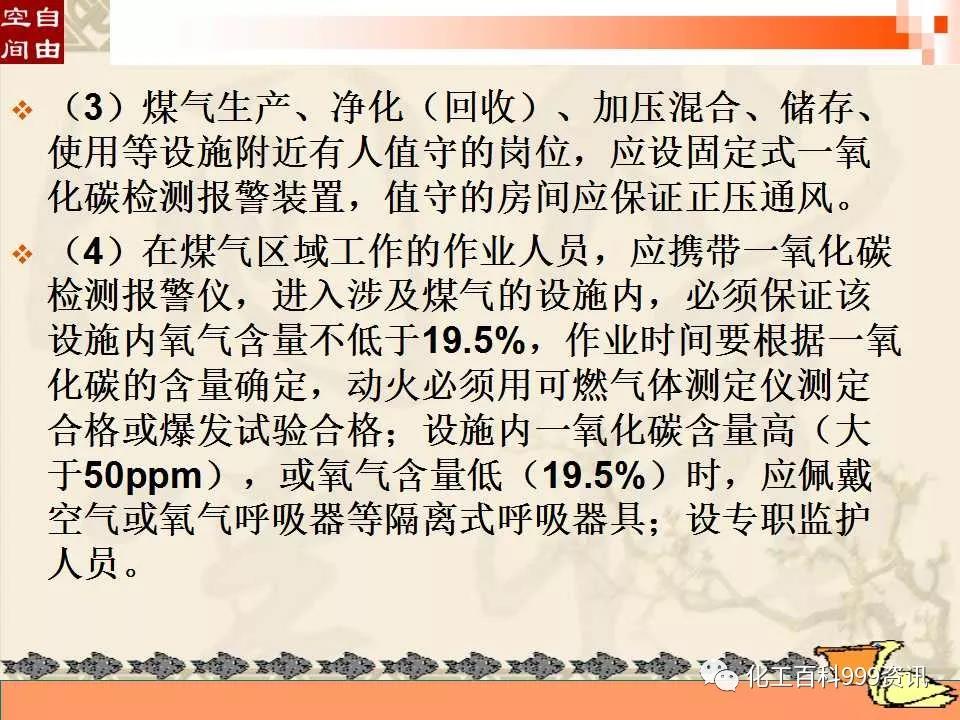 空自
间由
（3）煤气生产、净化（回收）、加压混合、储存、
使用等设施附近有人值守的岗位，应设固定式一氧
化碳检测报警装置，值守的房间应保证正压通风。
（4）在煤气区域工作的作业人员，应携带一氧化碳
检测报警仪，进入涉及煤气的设施内，必须保证该
设施内氧气含量不低于19.5%，作业时间要根据一氧
化碳的含量确定，动火必须用可燃气体测定仪测定
合格或爆发试验合格；设施内一氧化碳含量高（大
于50ppm），或氧气含量低（19.5%）时，应佩戴
空气或氧气呼吸器等隔离式呼吸器具；设专职监护
人员。
化工百科999资讯